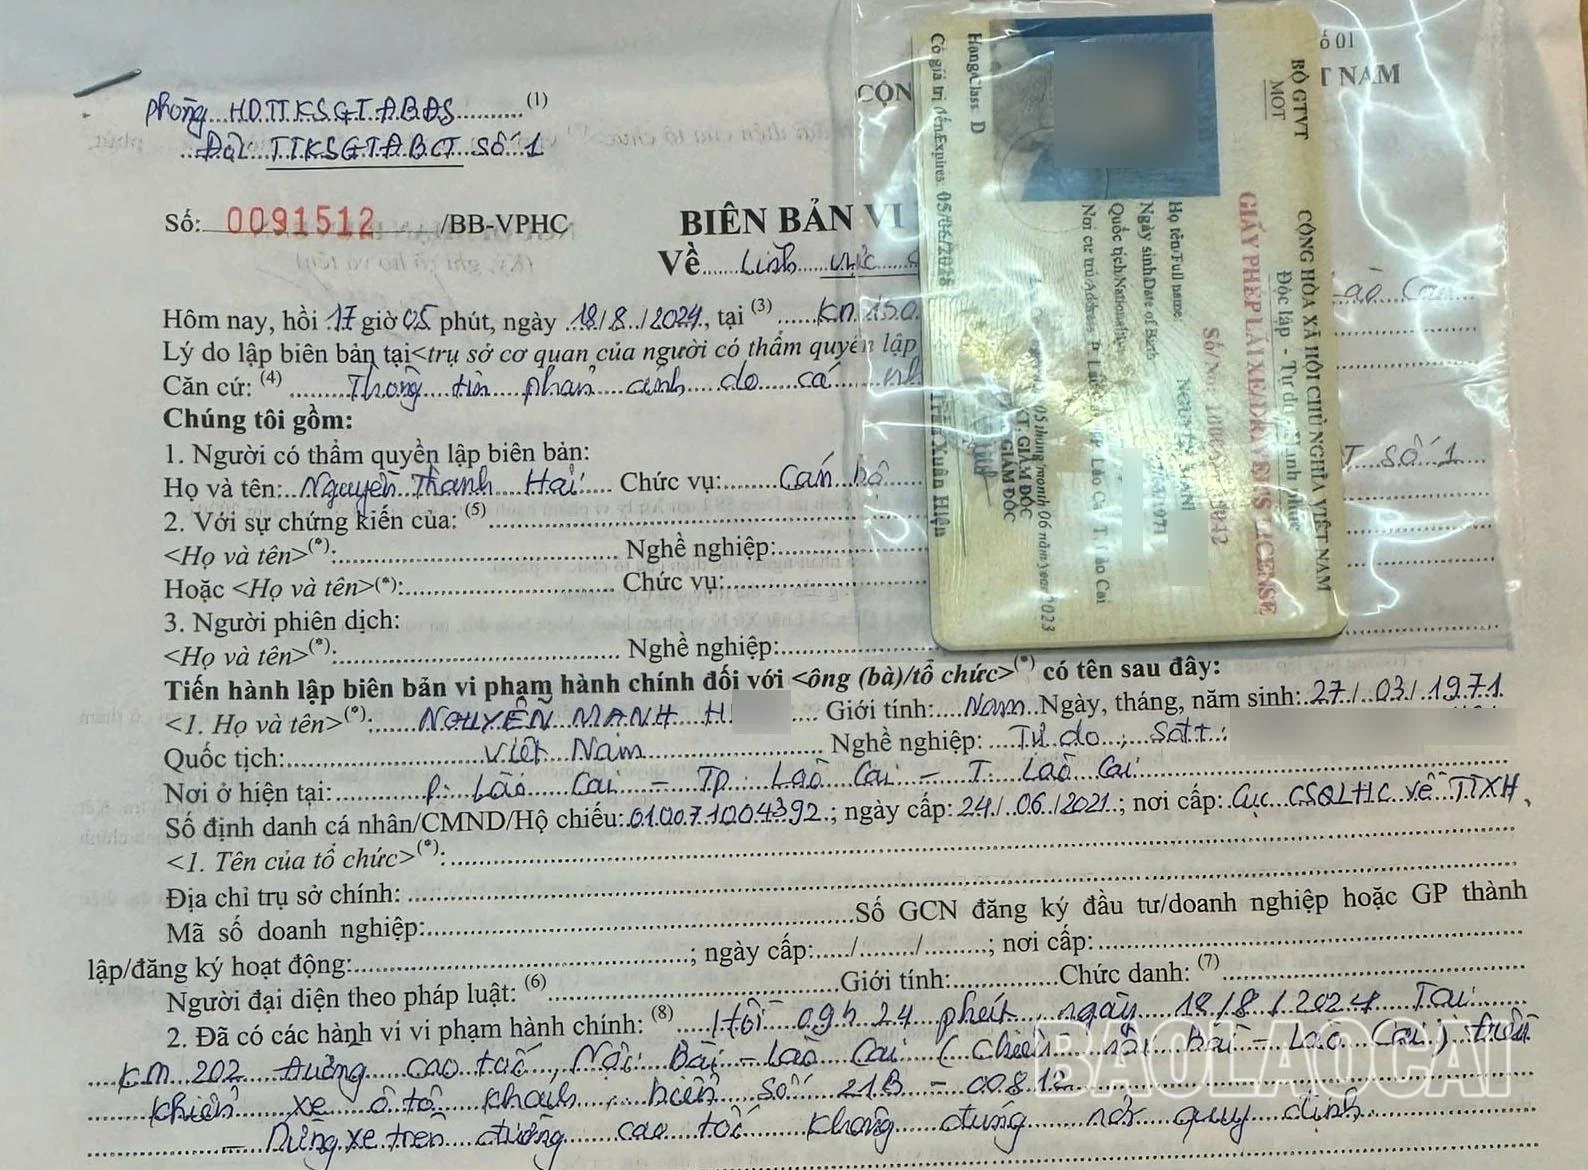 Phòng HDTTKSGTĐBĐS (1)
Đội TTKSGTĐBCT số 1
Số: 0091512 /BB-VPHC
BIÊN BẢN VI
Về Lĩnh vực
Hôm nay, hồi 17 giờ 05 phút, ngày 18/8/2024, tại (3) Km 150
Lý do lập biên bản tại <trụ sở cơ quan của người có thẩm quyền lập
Căn cứ: (4) Thông tin phản ánh do cá nh
Chúng tôi gồm:
1. Người có thẩm quyền lập biên bản:
Họ và tên: Nguyễn Thanh Hải Chức vụ: Cán bộ
T số 1
2. Với sự chứng kiến của: (5)
<Họ và tên>(*): Nghề nghiệp:
Hoặc <Họ và tên>(*): Chức vụ:
3. Người phiên dịch:
<Họ và tên>(*): Nghề nghiệp:
Tiến hành lập biên bản vi phạm hành chính đối với <ông (bà)/tổ chức>(*) có tên sau đây:
<1. Họ và tên>(*): NGUYỄN MẠNH H Giới tính: Nam Ngày, tháng, năm sinh: 27/03/1971
Quốc tịch: Việt Nam Nghề nghiệp: Tự do; Sđt:
Nơi ở hiện tại: P. Lào Cai - Tp. Lào Cai - T. Lào Cai
Số định danh cá nhân/CMND/Hộ chiếu: 010071004392; ngày cấp: 24/06/2021; nơi cấp: Cục CSQLHC về TTXH
<1. Tên của tổ chức>(*):
Địa chỉ trụ sở chính:
Mã số doanh nghiệp: Số GCN đăng ký đầu tư/doanh nghiệp hoặc GP thành
lập/đăng ký hoạt động: ; ngày cấp: / / ; nơi cấp:
Người đại diện theo pháp luật: (6) Giới tính: Chức danh: (7)
2. Đã có các hành vi vi phạm hành chính: (8) Hồi 09h 24 phút, ngày 18/8/2024 Tại
Km 202 đường cao tốc Nội Bài - Lào Cai (chiều Nội Bài - Lào Cai) điều
khiển xe ô tô khách, biển số 21B - 008.12
- Dừng xe trên đường cao tốc không đúng nơi quy định
BAOLAOCAI
ố 01
T NAM
CỘN
BỘ GTVT
MOT
CỘNG HÒA XÃ HỘI CHỦ NGHĨA VIỆT NAM
Độc lập - Tự do - Hạnh phúc
GIẤY PHÉP LÁI XE/DRIVER'S LICENSE
Số/No:
Họ tên/Full name: NGUYỄN MẠNH
Ngày sinh/Date of Birth 1971
Quốc tịch/Nationality:
Nơi cư trú/Address: P. Lào Cai, TP. Lào Cai, T. Lào Cai
05 tháng/month 06 năm/year 2023
KT. GIÁM ĐỐC
GIÁM ĐỐC
Trần Xuân Hiện
Hạng/Class: D
Có giá trị đến/Expires: 05/06/2028